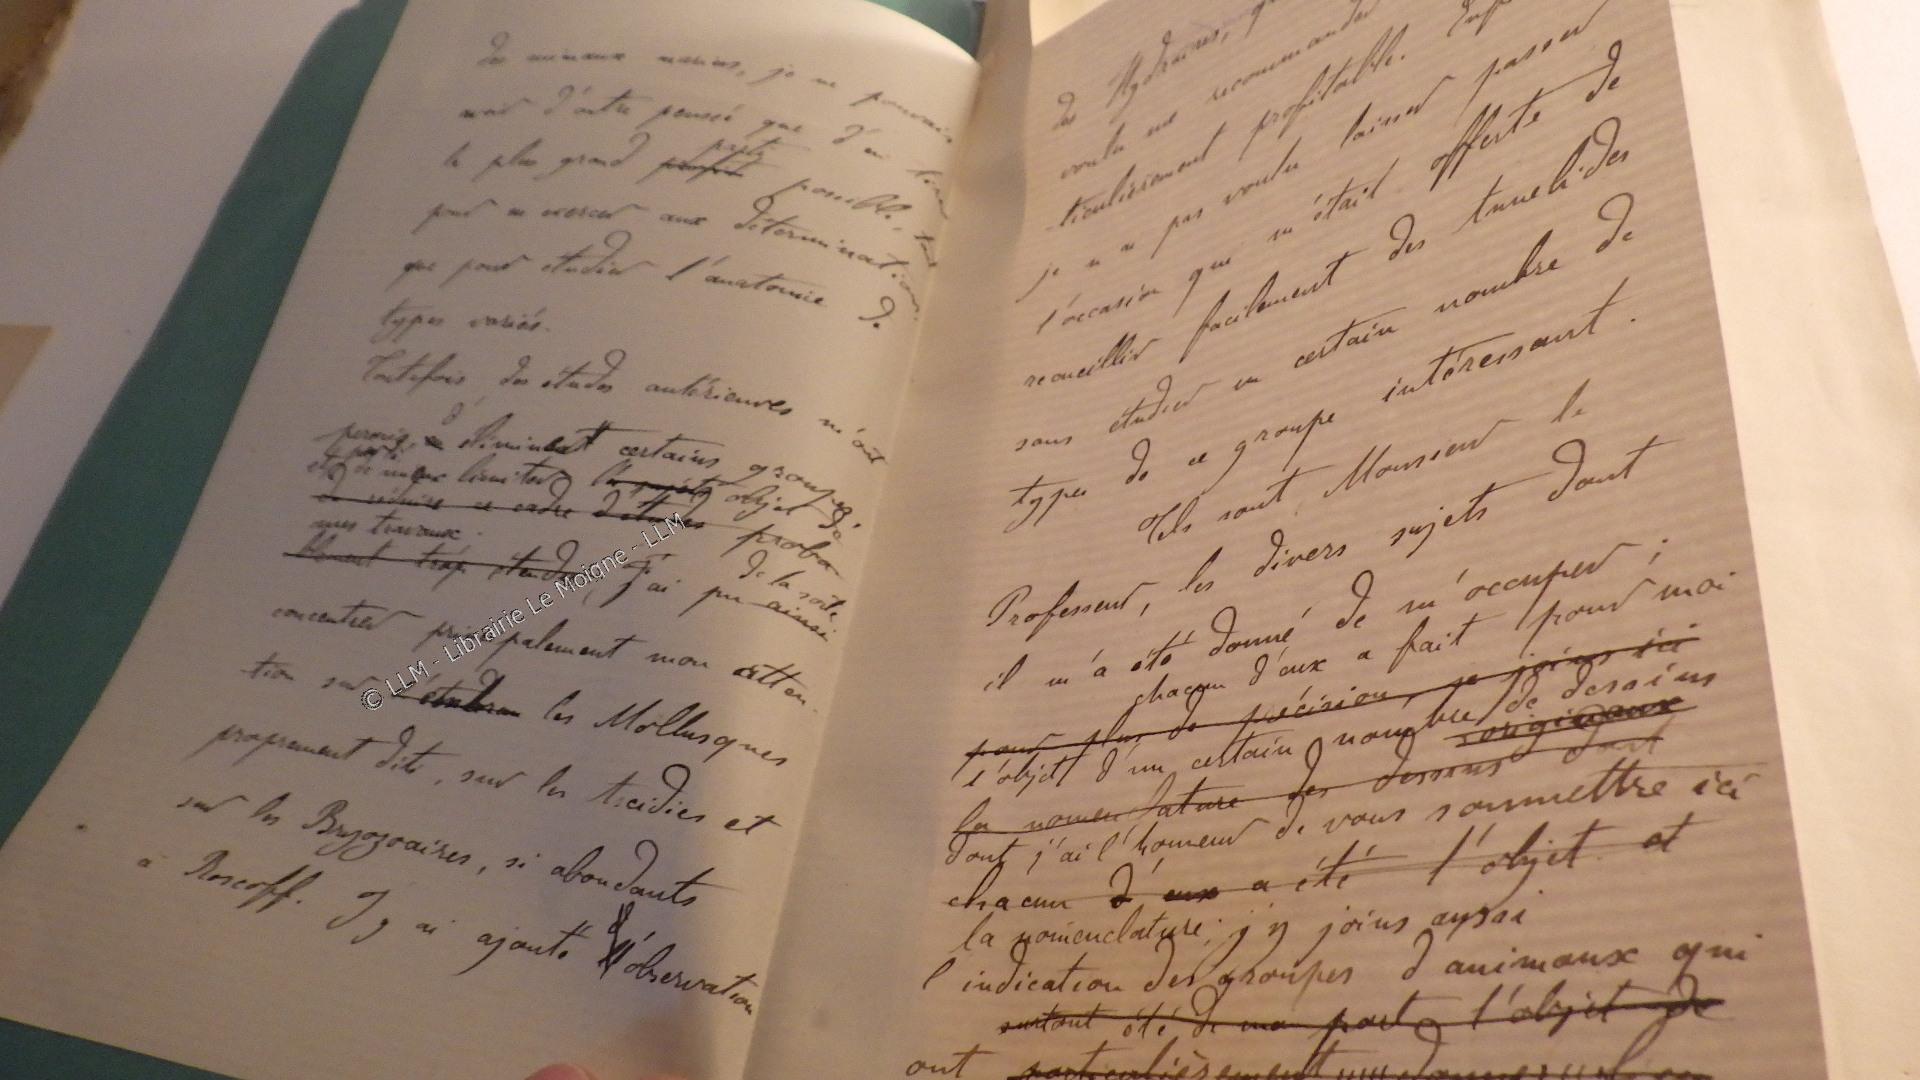 des animaux marins, je ne pouvais
avoir d'autre pensée que d'en tirer
le plus grand parti possible, tant
pour m'exercer aux déterminations
que pour étudier l'anatomie de
types variés.
Toutefois, des études antérieures m'ont
permis d'éliminer certains groupes
et de mieux limiter l'objet de
et réduire ce cadre d'études proba-
mes travaux.
blement trop étendu, j'ai pu ainsi
de la sorte
concentrer principalement mon atten-
tion sur les Mollusques
proprement dits, sur les Ascidies et
sur les Bryozoaires, si abondants
à Roscoff. J'y ai ajouté l'observation
des Hydraires,
voulu me recommander
-ticulièrement profitable.
je n'ai pas voulu laisser passer
l'occasion qui m'était offerte de
recueillir facilement des Annélides
sans étudier un certain nombre de
types de ce groupe intéressant.
Tels sont, Monsieur le
Professeur, les divers sujets dont
il m'a été donné de m'occuper ;
chacun d'eux a fait pour moi
pour plus de précision, je joins ici
l'objet d'un certain nombre de dessins
originaux
la nomenclature des dessins dont
dont j'ai l'honneur de vous soumettre ici
chacun d'eux a été l'objet et
la nomenclature ; j'y joins aussi
l'indication des groupes d'animaux qui
surtout été de ma part l'objet de
ont particulièrement
© LLM - Librairie Le Moigne - LLM